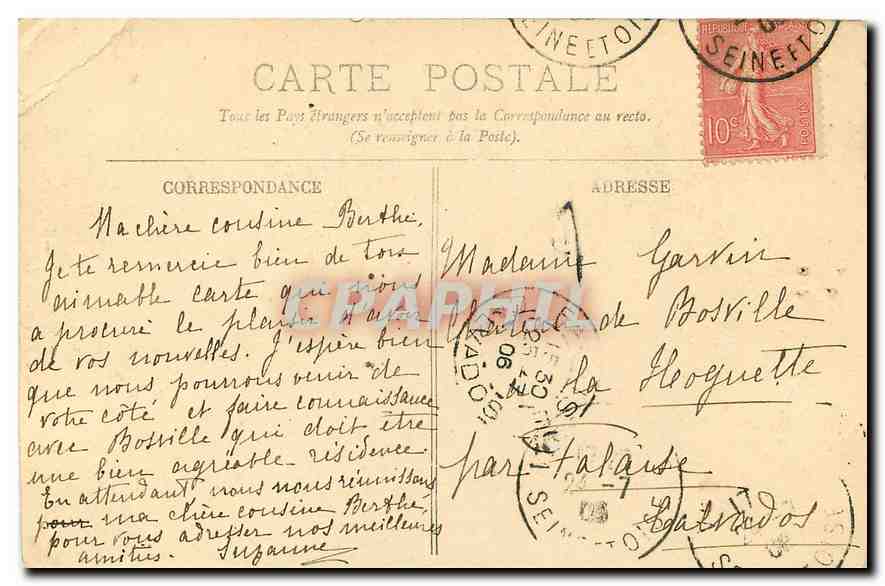 SEINE ET OISE
SEINE ET O
REPUBLIQUE FRANÇAISE
10c
POSTES
CARTE POSTALE
Tous les Pays étrangers n'acceptent pas la Correspondance au recto.
(Se renseigner à la Poste).
CORRESPONDANCE
Ma chère cousine Berthe,
Je te remercie bien de ton
aimable carte qui nous
a procuré le plaisir d'avoir
de vos nouvelles. J'espère bien
que nous pourrons venir de
votre côté et faire connaissance
avec Bosville qui doit être
une bien agréable résidence
En attendant nous nous réunissons
pour ma chère cousine Berthe,
pour vous adresser nos meilleures
amitiés. Suzanne
ADRESSE
Madame Garvin
Château de Bosville
à la Hoguette
par Falaise
Calvados
CPAPHIL
CALVADOS
30
06
24 -7
06
SEINE ET O